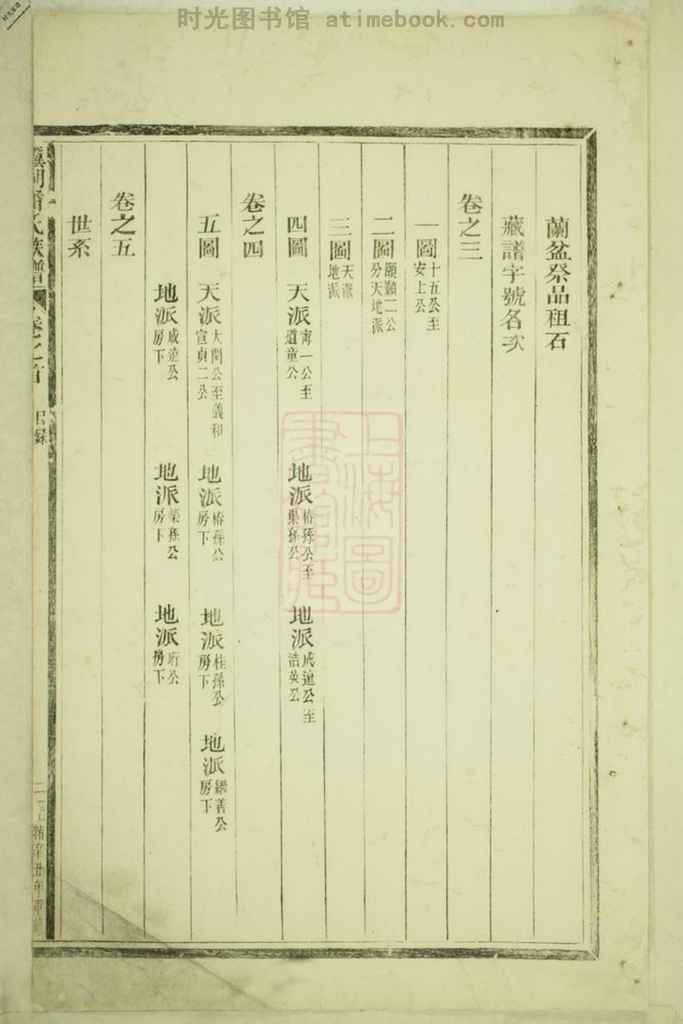 时光图书馆 atimebook.com
蘭盆祭品租石
藏譜字號名次
卷之三
一圖 十五公至安上公
二圖 頤顥二公分天地派
三圖 天派地派
四圖 天派 壽一公至道童公 地派 椿孫公至榮孫公 地派 成遠公至誥英公
卷之四
五圖 天派 大閏公至義和宣貞二公 地派 椿孫公房下 地派 桂孫公房下 地派 繼善公房下
地派 成遠公房下 地派 榮孫公房下 地派 珩公房下
卷之五
世系
氏族譜 卷之首 目錄
二
上海圖書館藏